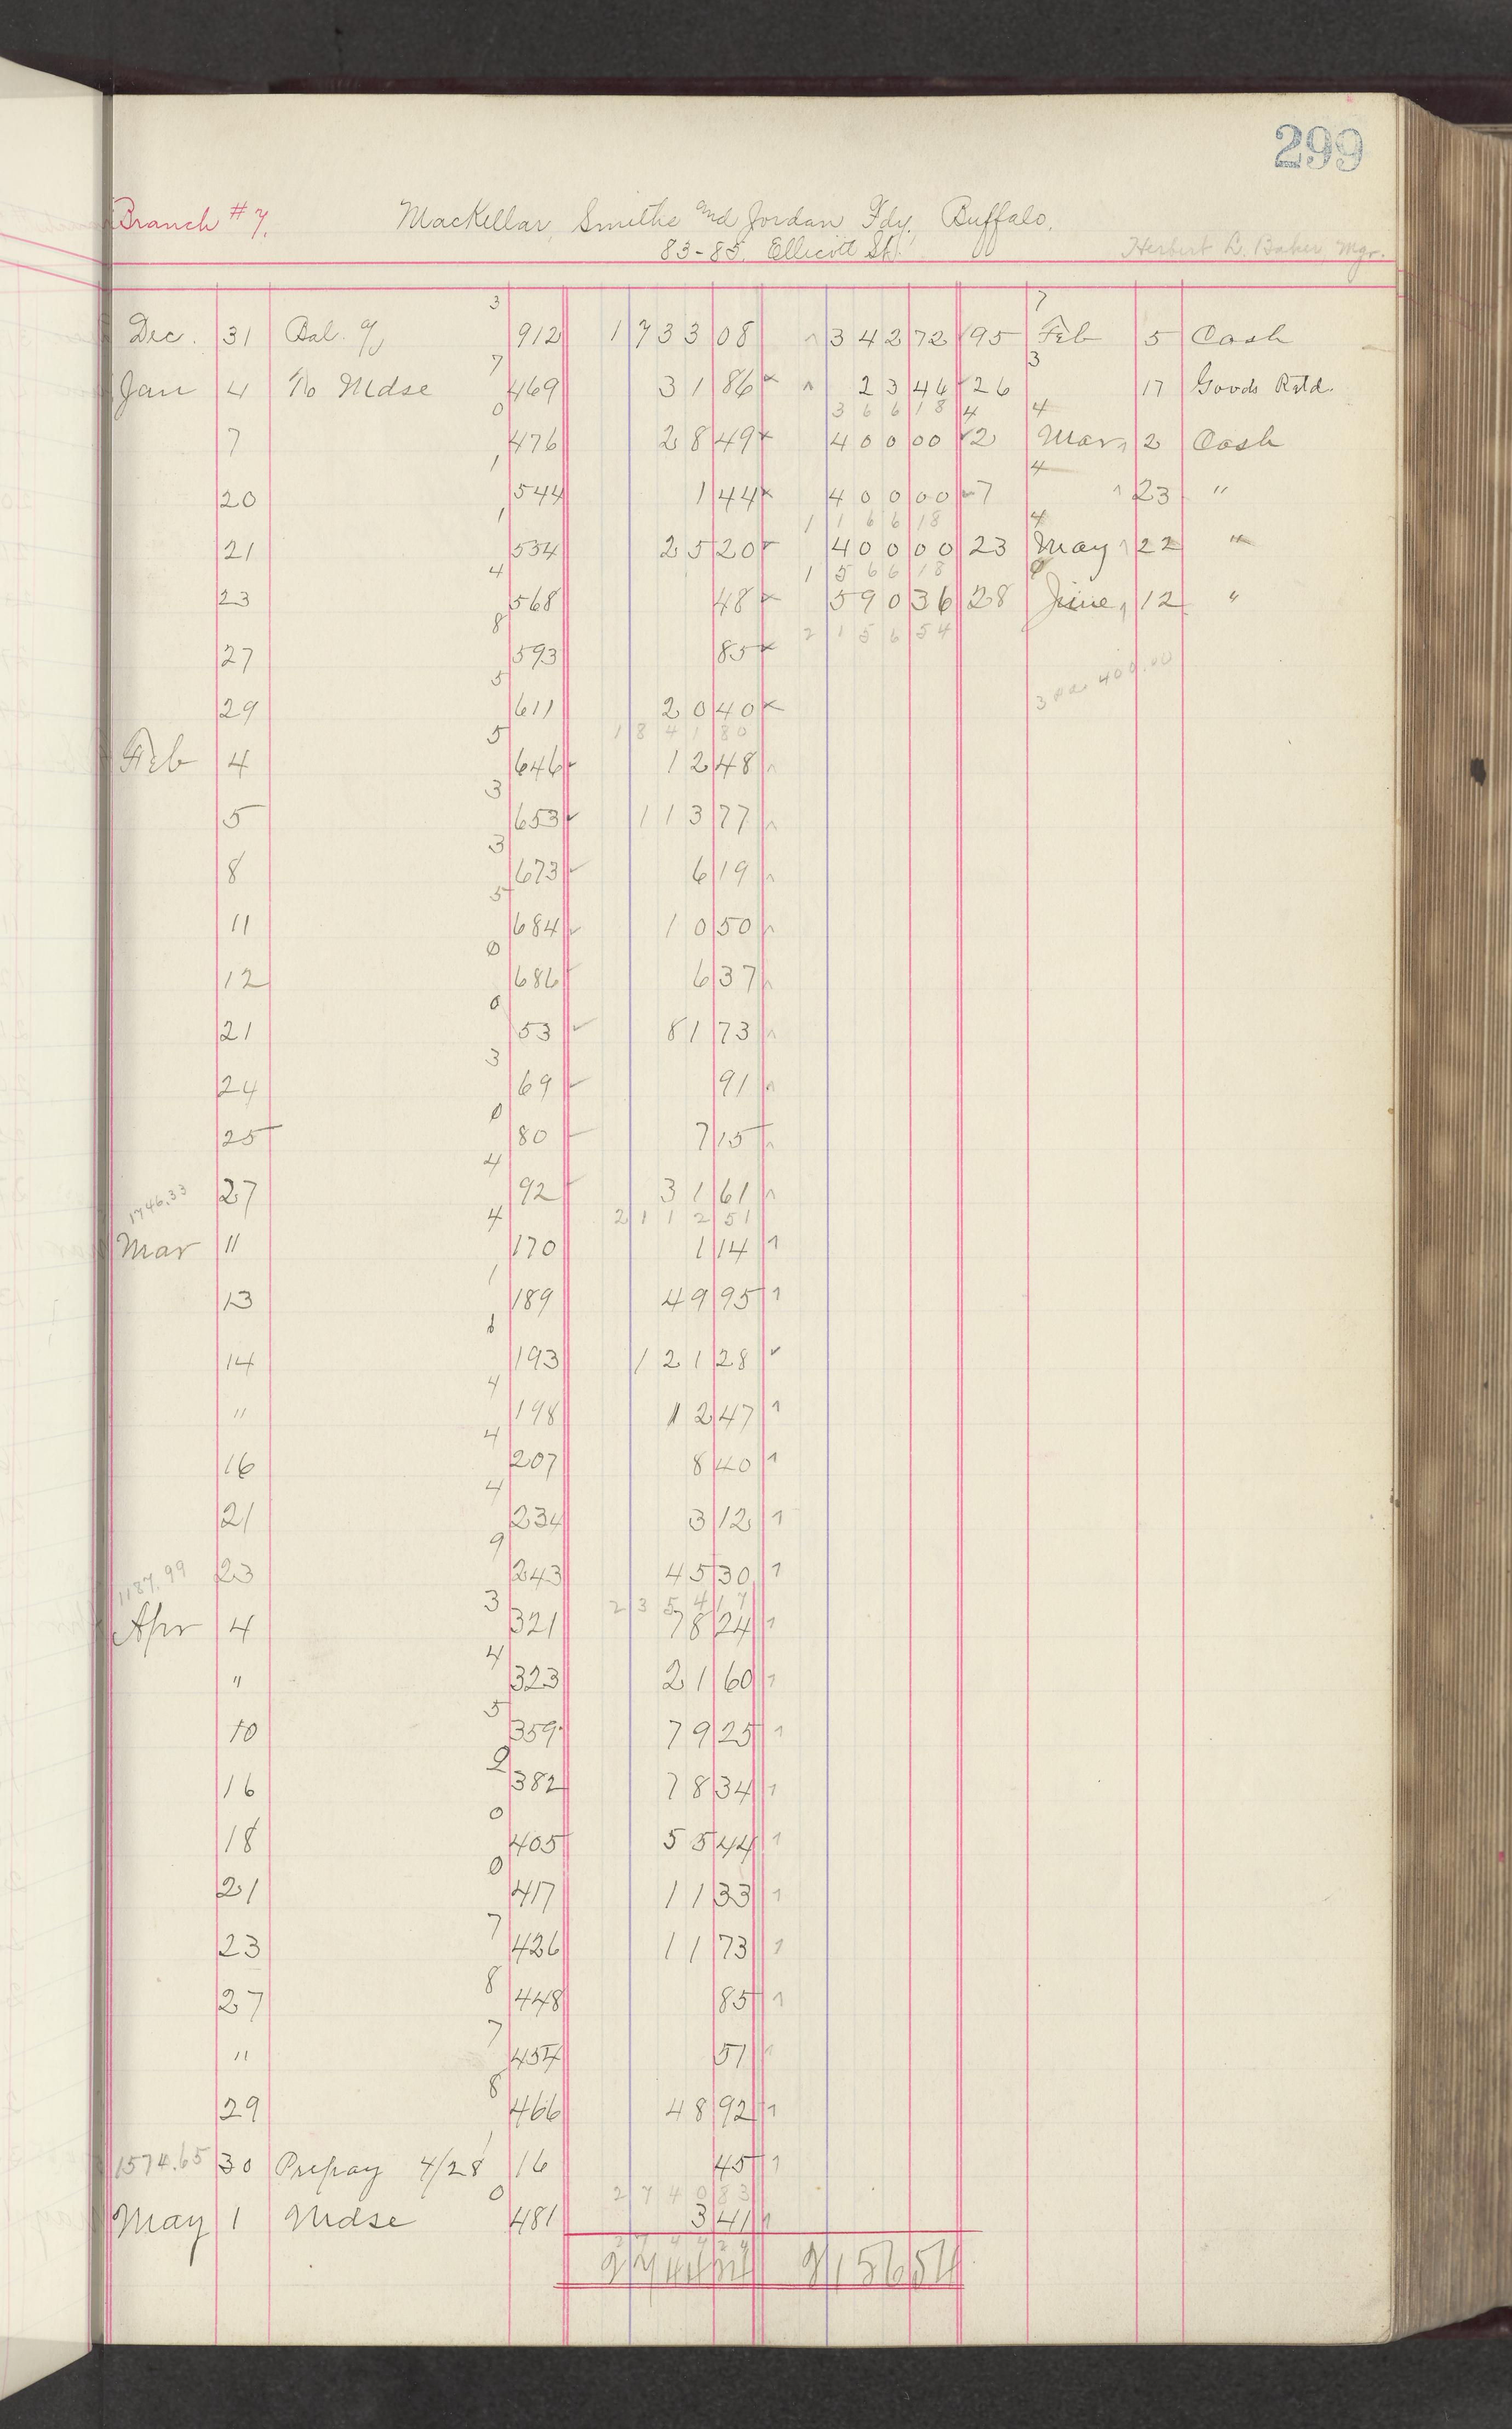 299
Branch # 7. MacKellar, Smiths and Jordan Fdy, Buffalo.
83-85. Ellicott St. Herbert L. Baker, Mgr.
3 7
Dec. 31 Bal. 912 1733 08 342 72 95 Feb 5 Cash
7 3
Jan 4 To Mdse 469 31 86 23 46 26 17 Goods Rtd.
0 366 18 4 4
7 476 28 49 400 00 2 Mar 2 Cash
1 4
20 544 1 44 400 00 7 23 "
1 1166 18 4
21 534 25 20 400 00 23 May 22 "
4 1566 18
23 568 48 590 36 28 June 12 "
8 2156 54
27 593 85
5 400.00
29 611 20 40
5 1841 80
Feb 4 646 12 48
3
5 653 113 77
3
8 673 6 19
5
11 684 10 50
0
12 686 6 37
0
21 53 81 73
3
24 69 91
0
25 80 7 15
4
1746.33 27 92 31 61
4 2112 51
Mar 11 170 1 14
1
13 189 49 95
14 193 121 28
4
" 198 12 47
4
16 207 8 40
4
21 234 3 12
9
1187.99 23 243 45 30
3 2354 17
Apr 4 321 78 24
4
" 323 21 60
5
10 359 79 25
2
16 382 78 34
0
18 405 55 44
0
21 417 11 33
7
23 426 11 73
8
27 448 85
7
" 454 51
8
29 466 48 92
1
1574.65 30 Prepay 4/28 16 45
0 2740 83
May 1 Mdse 481 3 41
2744 24
2744 24 2156 54